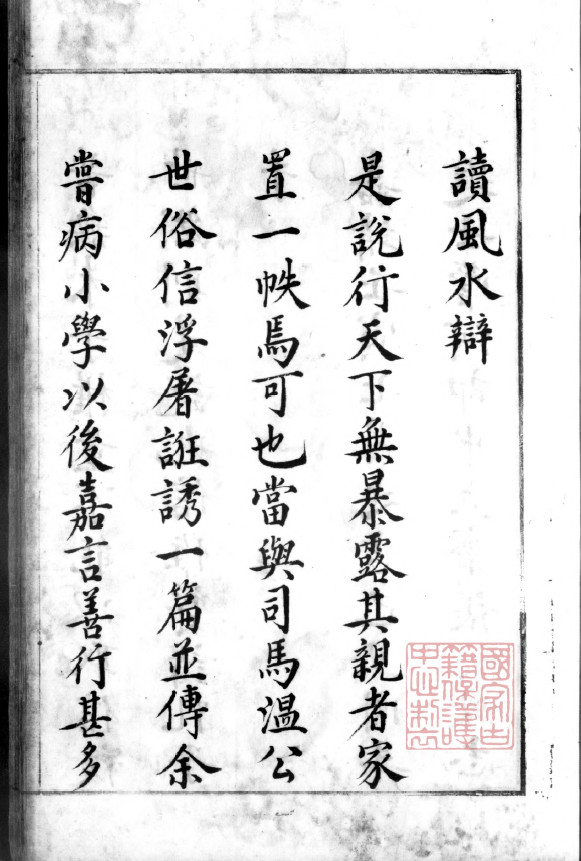 讀風水辯
是説行天下無暴露其親者家
置一帙焉可也當與司馬温公
世俗信浮屠誑誘一篇並傳余
嘗病小學以後嘉言善行甚多
國家古
籍保護
中心制